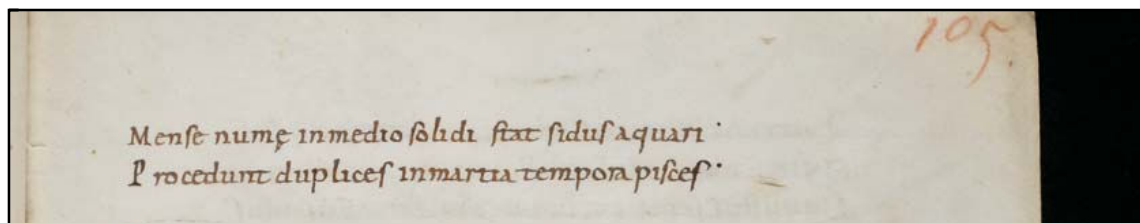 105.
Mense numę in medio solidi stat sidus aquari ·
Procedunt duplices in martia tempora pisces ·